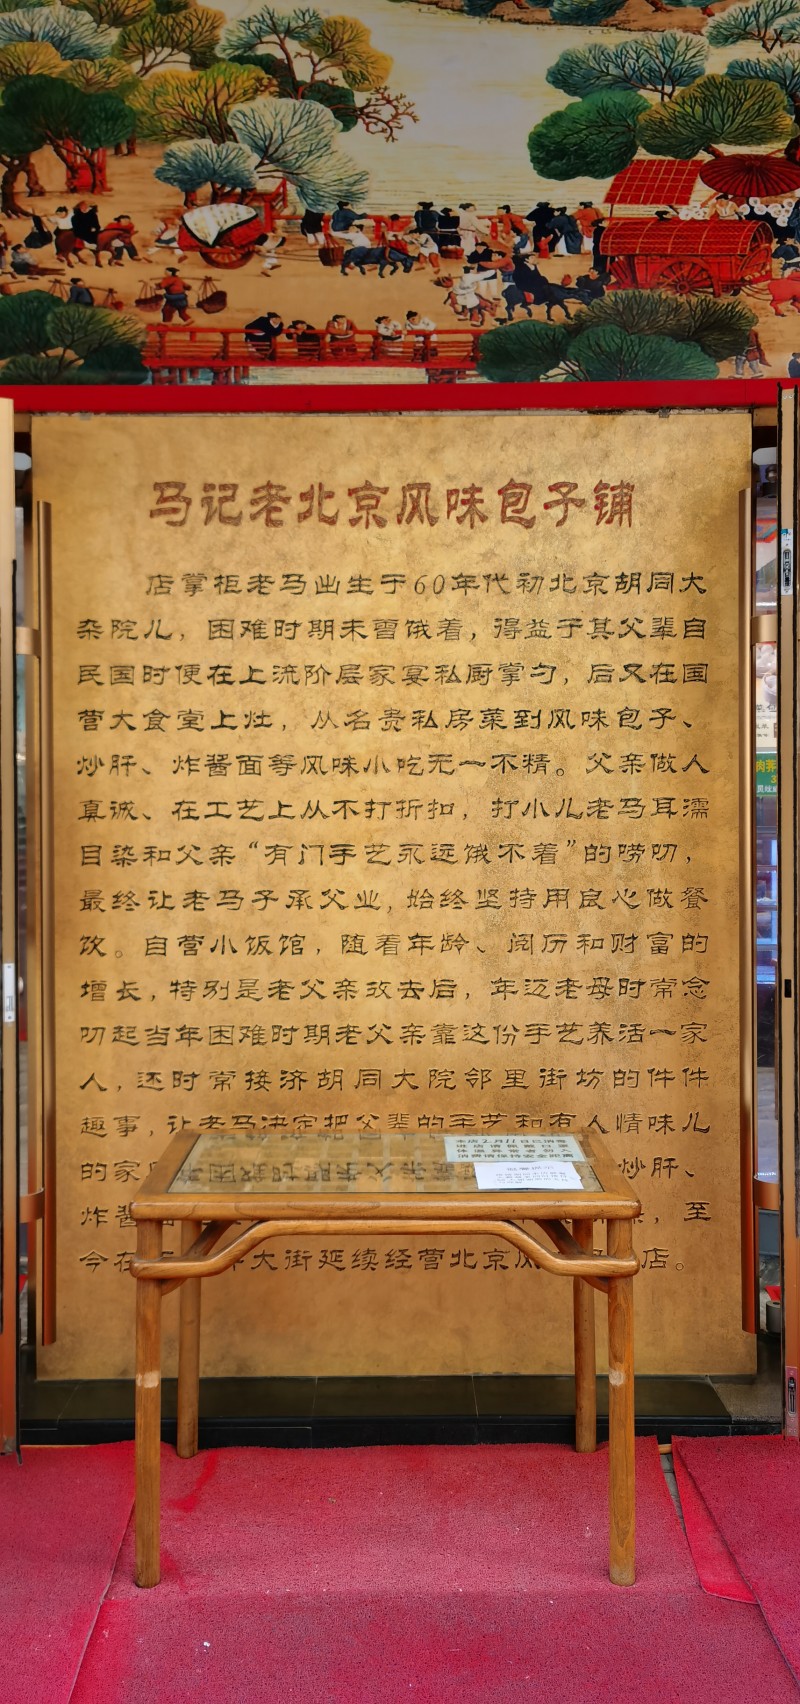 马记老北京风味包子铺
店掌柜老马出生于60年代初北京胡同大
杂院儿，困难时期未曾饿着，得益于其父辈自
民国时便在上流阶层家宴私厨掌勺，后又在国
营大食堂上灶，从名贵私房菜到风味包子、
炒肝、炸酱面等风味小吃无一不精。父亲做人
真诚、在工艺上从不打折扣，打小儿老马耳濡
目染和父亲“有门手艺永远饿不着”的唠叨，
最终让老马子承父业，始终坚持用良心做餐
饮。自营小饭馆，随着年龄、阅历和财富的
增长，特别是老父亲故去后，年迈老母时常念
叨起当年困难时期老父亲靠这份手艺养活一家
人，还时常接济胡同大院邻里街坊的件件
趣事，让老马决定把父辈的手艺和有人情味儿
的家 炒肝、
炸酱 ，至
今在 大街延续经营北京风 店。
本店2月11日已消毒
进店请佩戴口罩
体温异常者勿入
消费请保持安全距离